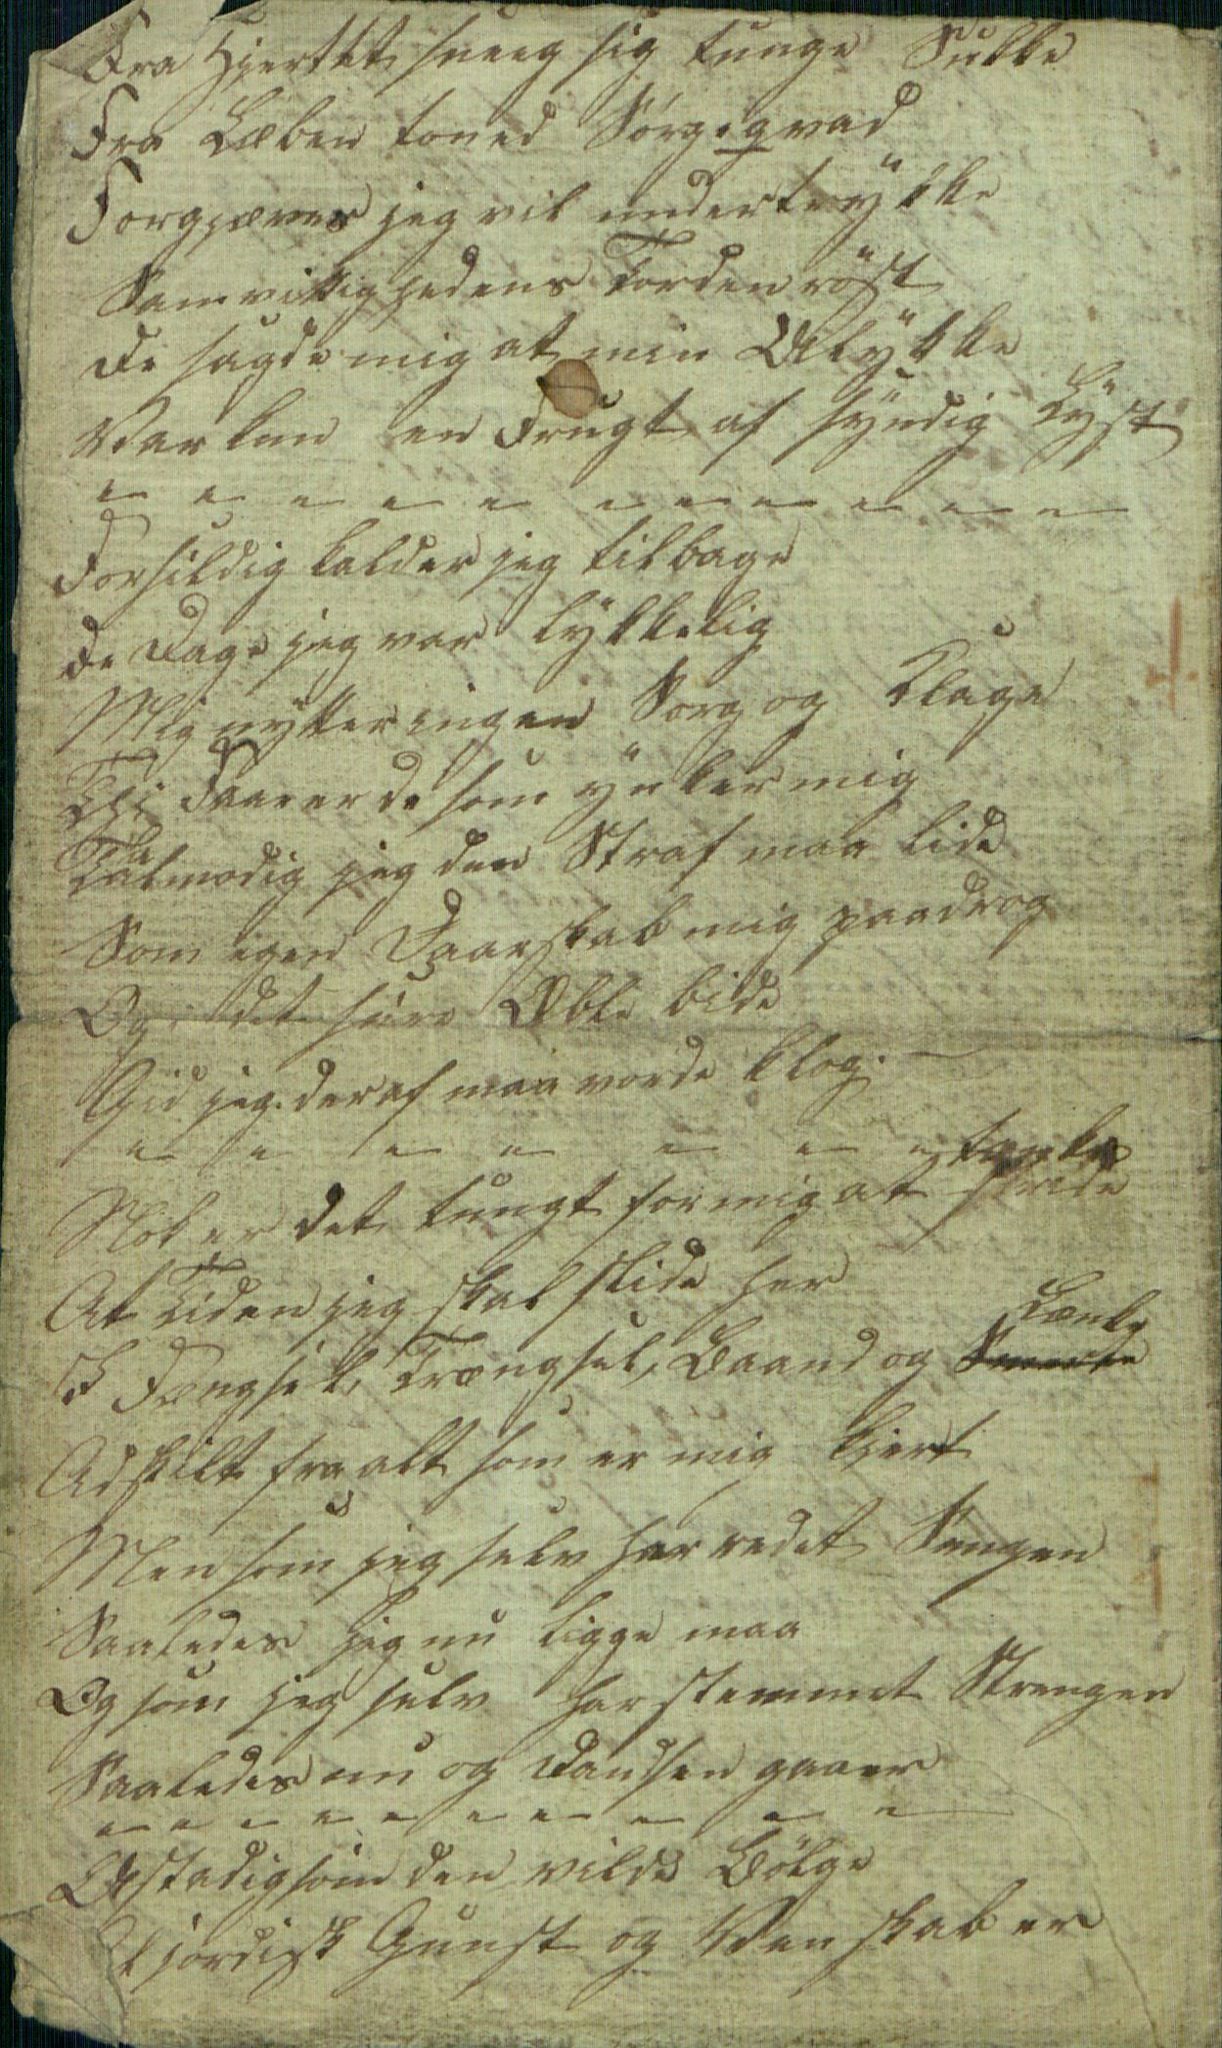 Fra Hjertet sneeg sig tunge Sukke
Fra Læben toned Sørgeqvad
Forgjæves jeg vil undertrykke
Samvittighedens Tordenrøst
De sagde mig at min Ulykke
Var kun en Frugt af syndig Lyst
Forsildig kalder jeg tilbage
De Dage jeg var lykkelig
Mig nytter ingen Sorg og Klage
Thi Faa er de som ynker mig
Talmodig jeg den Straf maa lide
Som egen Daarskab mig paadrog
Og i det sure Æble bide
Gid jeg deraf maa vorde klog.
tænke
Nok er det tungt for mig at
At Tiden jeg skal slide her
Lænke
I Fængsel, Trængsel, Baand og
Adskilt fra alt som er mig kjert
Men som jeg selv har redet Sengen
Saaledes jeg nu ligge maa
Og som jeg selv har stemmet Strengen
Saaledes nu og Dandsen gaaer
Ustadig som den vilde Bølge
jordisk Gunst og Venskab er